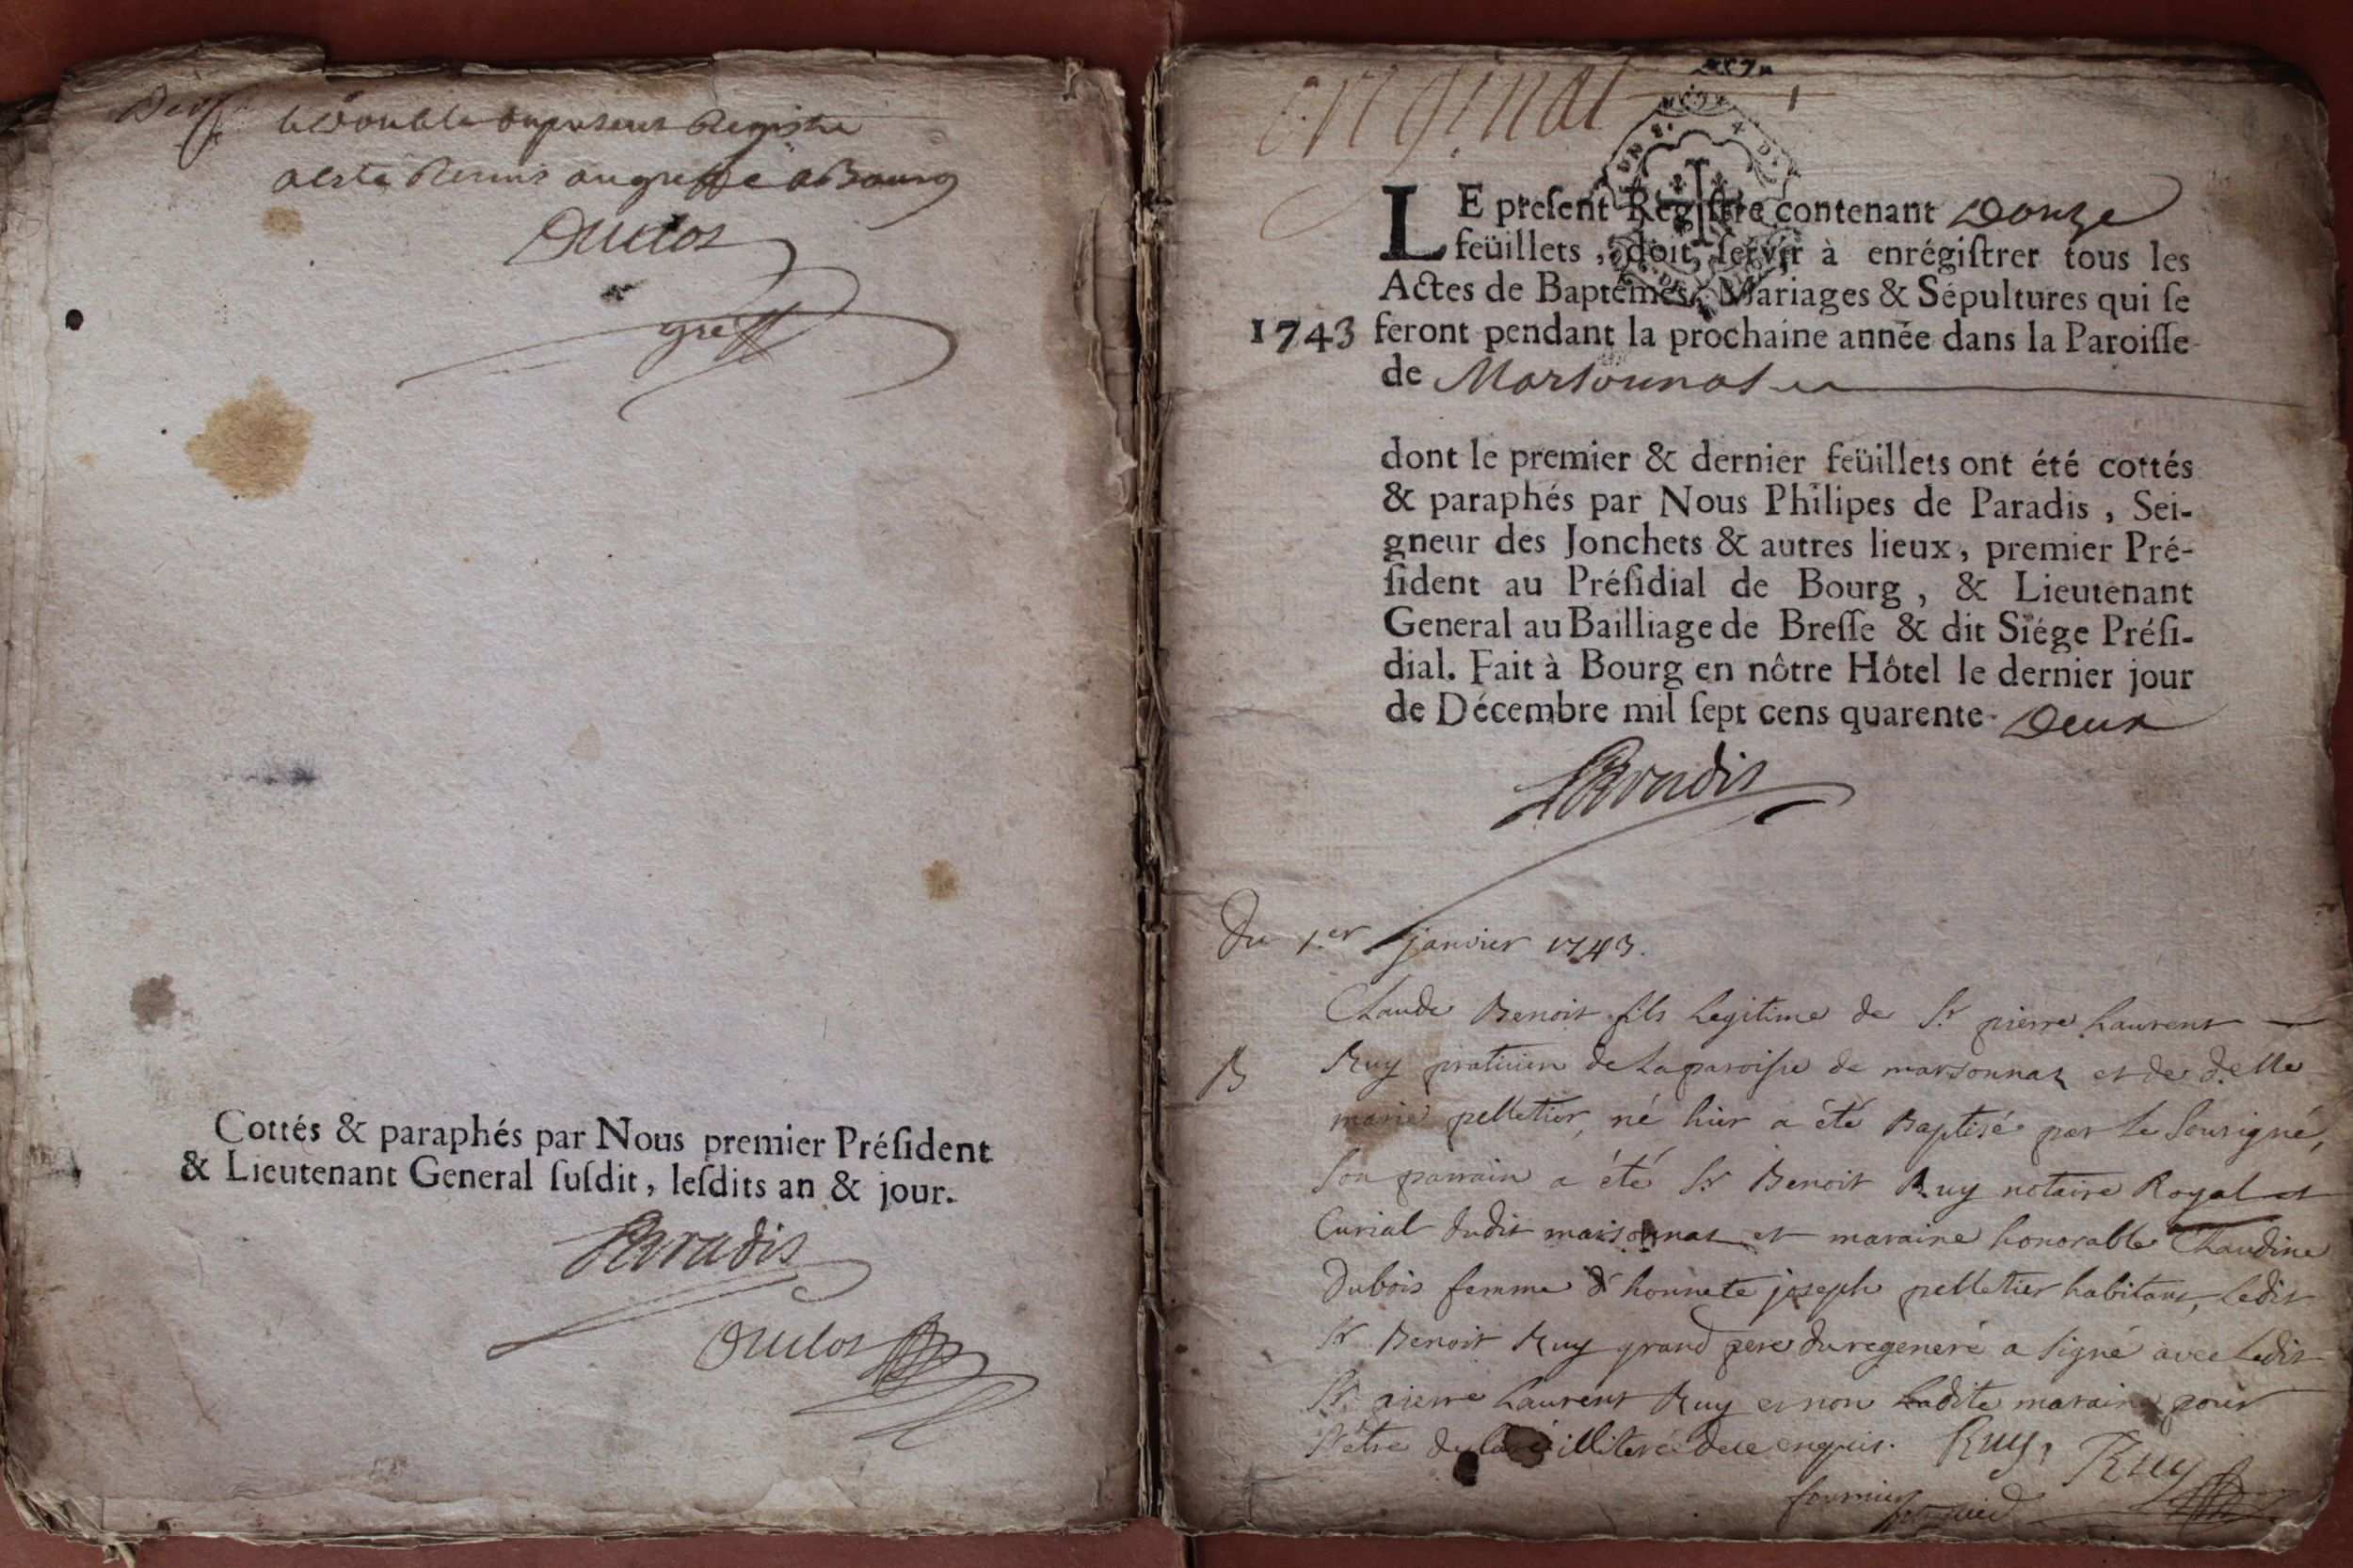 le double du present Registre
a esté Remis au greffe a Bourg
Duclos
greff
Cottés & paraphés par Nous premier Préſident
& Lieutenant General ſuſdit, leſdits an & jour.
Paradis
Duclos
original
LE preſent Regiſtre contenant Douze
feüillets, doit ſervir à enrégiſtrer tous les
Actes de Baptêmes, Mariages & Sépultures qui ſe
1743 feront pendant la prochaine année dans la Paroiſſe
de Marsonnas
dont le premier & dernier feüillets ont été cottés
& paraphés par Nous Philipes de Paradis, Sei-
gneur des Jonchets & autres lieux, premier Pré-
ſident au Préſidial de Bourg, & Lieutenant
General au Bailliage de Breſſe & dit Siége Préſi-
dial. Fait à Bourg en nôtre Hôtel le dernier jour
de Décembre mil ſept cens quarente-Deux
Paradis
Du 1.er janvier 1743.
Claude Benoit fils legitime de Sr pierre Laurent
B Ruy praticien de La paroisse de marsonnas et de d.elle
marie pelletier, né hier a été Baptisé par le Sousigné,
Son parrain a été Sr Benoit Ruy notaire Royal et
Curial dudit marsonnas et maraine honorable Claudine
Dubois femme d'honnete joseph pelletier habitant, Ledit
Sr Benoit Ruy grand pere du regeneré a signé avec Ledit
Sr pierre Laurent Ruy et non Ladite maraine pour
s'etre declaré illiteré de ce enquis. Ruy, Ruy
fournier